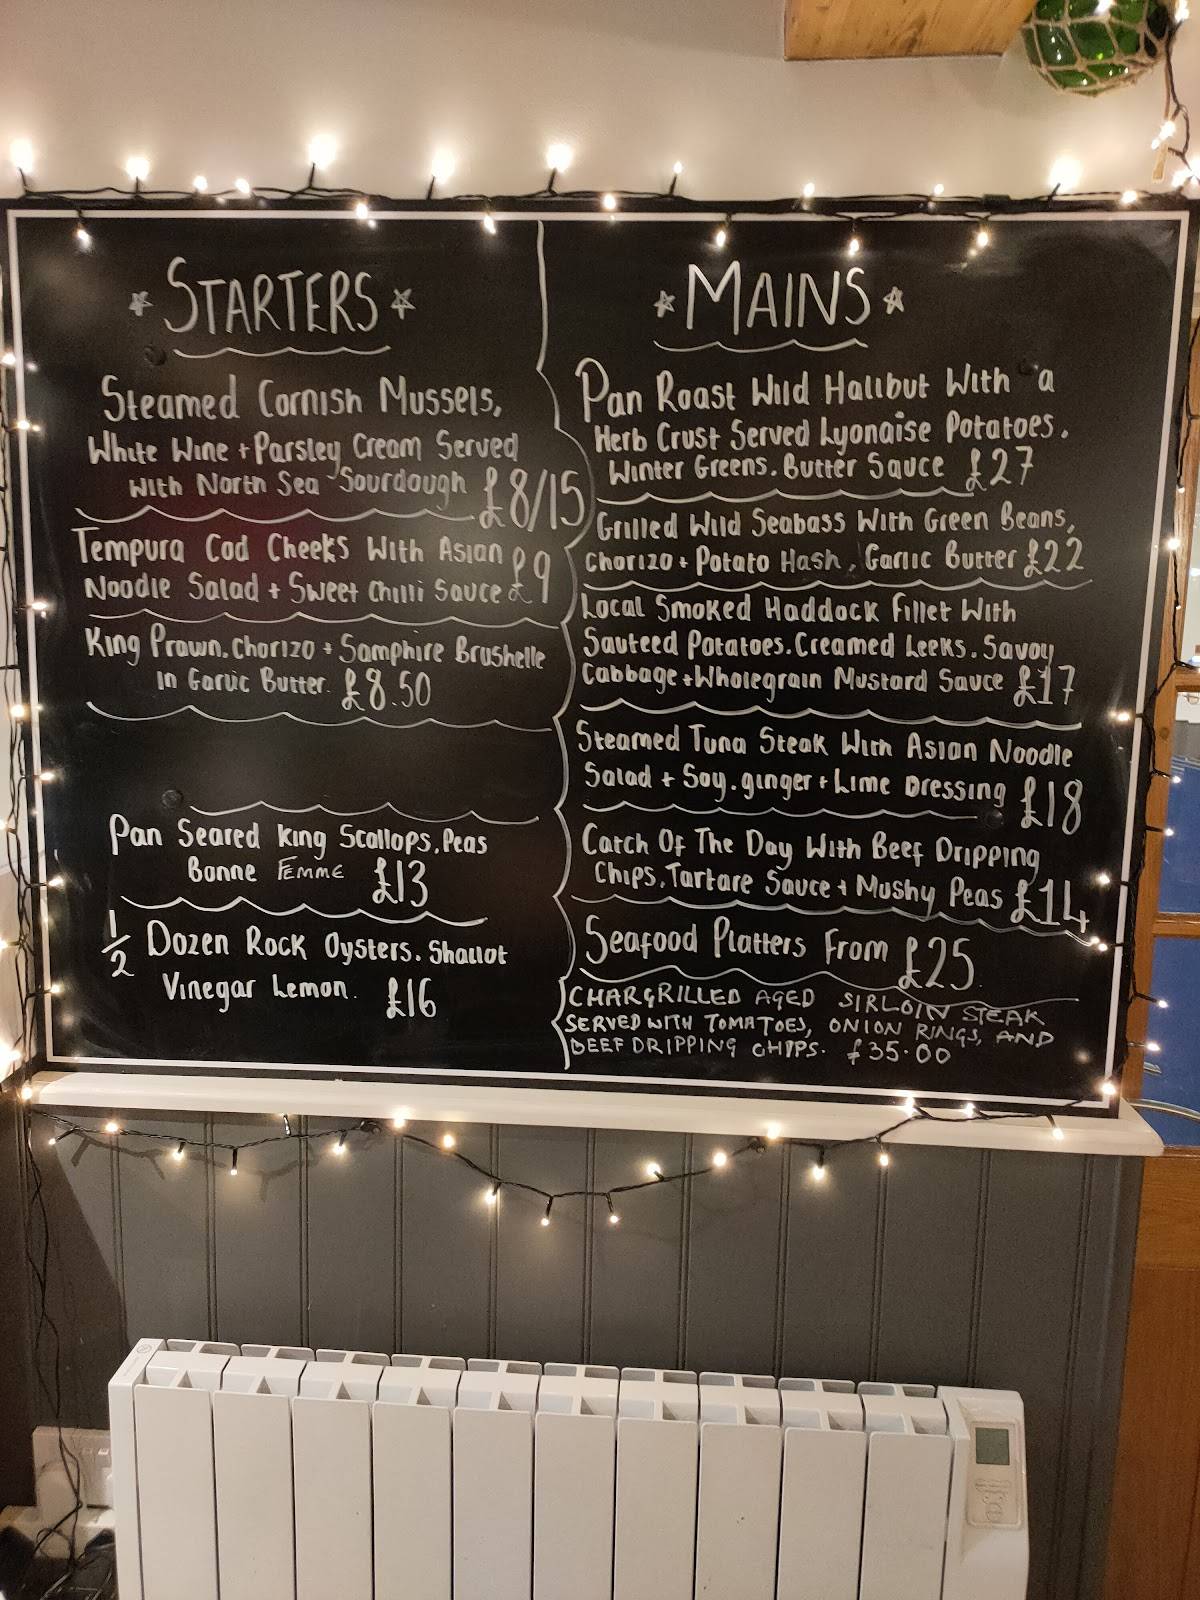 STARTERS
Steamed Cornish Mussels,
White Wine + Parsley Cream Served
With North Sea Sourdough £8/15
Tempura Cod Cheeks With Asian
Noodle Salad + Sweet Chilli Sauce £9
King Prawn. Chorizo + Samphire Brushelle
in Garlic Butter. £8.50
Pan Seared King Scallops, Peas
Bonne Femme £13
1/2 Dozen Rock Oysters. Shallot
Vinegar Lemon. £16
MAINS
Pan Roast Wild Halibut With a
Herb Crust Served Lyonaise Potatoes.
Winter Greens. Butter Sauce £27
Grilled Wild Seabass With Green Beans,
Chorizo + Potato Hash, Garlic Butter £22
Local Smoked Haddock Fillet With
Sauteed Potatoes. Creamed Leeks. Savoy
Cabbage + Wholegrain Mustard Sauce £17
Steamed Tuna Steak With Asian Noodle
Salad + Soy. ginger + Lime Dressing £18
Catch Of The Day With Beef Dripping
Chips, Tartare Sauce + Mushy Peas £14
Seafood Platters From £25.
CHARGRILLED AGED SIRLOIN STEAK
SERVED WITH TOMATOES, ONION RINGS, AND
BEEF DRIPPING CHIPS. £35.00